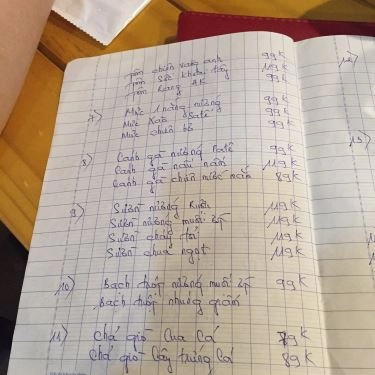 Tôm chiên vani anh 99K
Tôm sốt khoai tây 119K
Tôm rang AK 99K
7) Mực trứng nướng 99K
Mực xào satế 99K
Mực chiên bơ 99K
8) Cánh gà nướng Patê 99K
Cánh gà nấu nấm 119K
Cánh gà chiên nước mắm 89K
9) Sườn nướng 119K
Sườn nướng muối ớt 119K
Sườn cháy tỏi 119K
Sườn chua ngọt 119K
10) Bạch tuộc nướng muối ớt 99K
Bạch tuộc nhúng giấm
11) Chả giò Cua Cá 79K
Chả giò Cây trứng Cá 89K
12)
13)